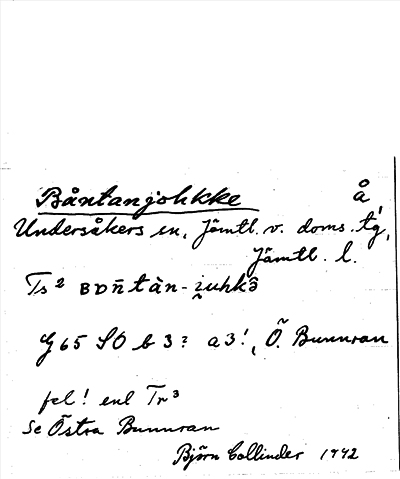 Båntanjohkke å,
Undersåkers sn, Jämtl. v. doms. tg,
Jämtl. l.
Ts² BDn̄tàn-i̯uhkə̑
G 65 SO b 3? a 3!, Ö. Bunnran
fel! enl Tr³
Se Östra Bunnran
Björn Collinder 1942